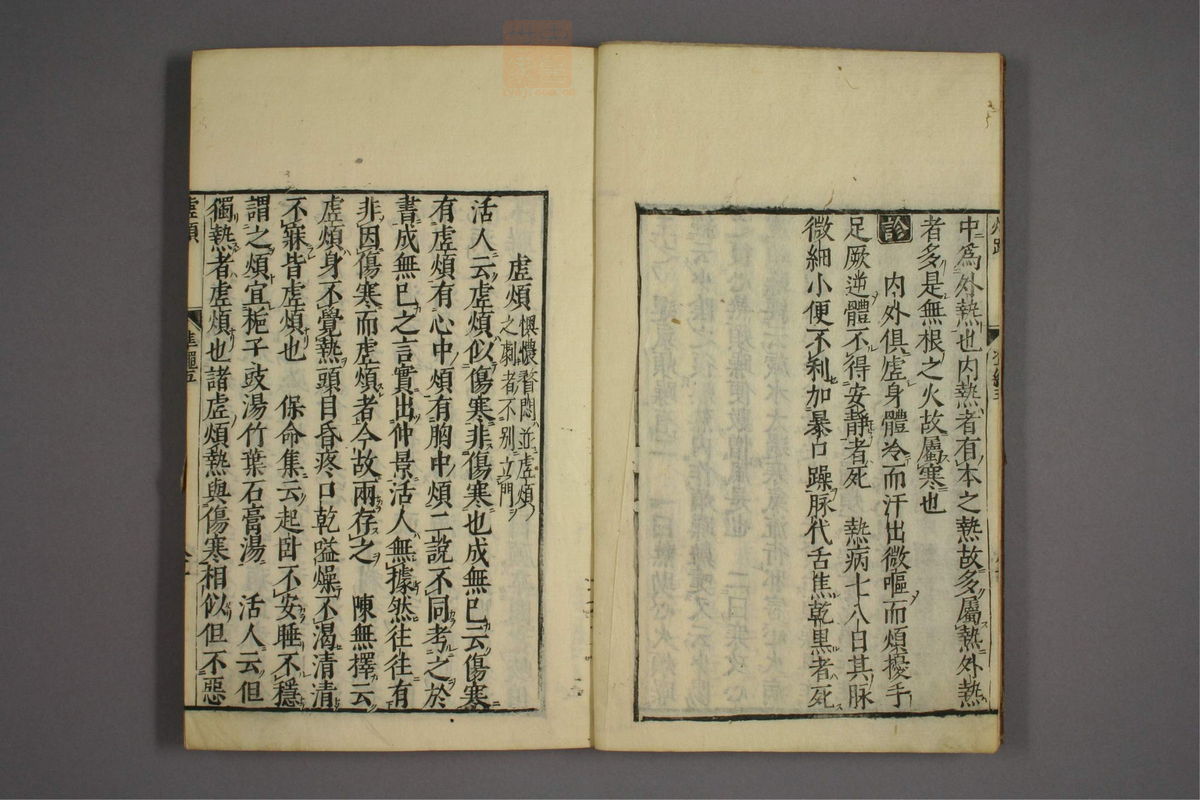 中爲外熱也内熱者有本之熱故多屬熱外熱
者多是無根之火故屬寒也
診 内外俱虛身體冷而汗出微嘔而煩擾手
足厥逆體不得安靜者死 熱病七八日其脉
微細小便不利加暴口躁脉代舌焦乾黒者死
虛煩 懊憹瞀悶並虛煩
之劇者不別立門
活人云虛煩似傷寒非傷寒也成無已云傷寒
有虛煩有心中煩有胸中煩二說不同考之於
書成無已之言實出仲景活人無據然往往有
非因傷寒而虛煩者今故兩存之 陳無擇云
虛煩身不覺熱頭目昏疼口乾嗌燥不渴清清
不寐皆虛煩也 保命集云起卧不安睡不穩
謂之煩宜梔子豉湯竹葉石膏湯 活人云但
獨熱者虛煩也諸虛煩熱與傷寒相似但不惡
虛煩 準繩五